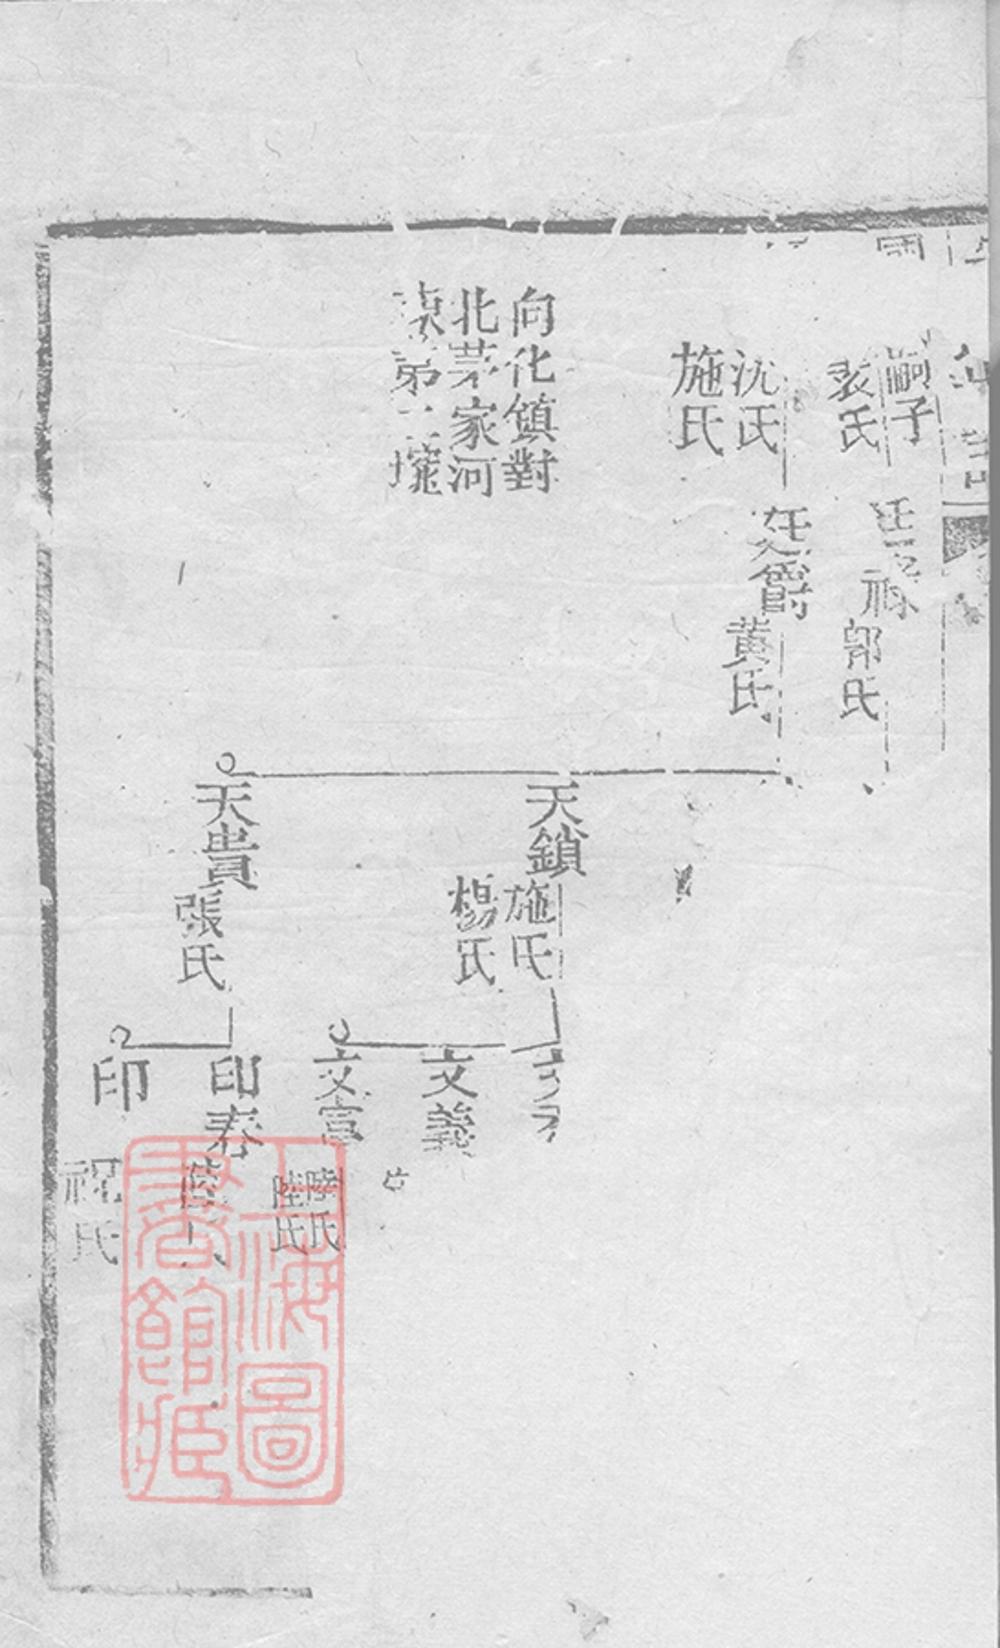 嗣子
裴氏
祿
郭氏
沈氏
施氏
廷爵
黄氏
向化鎮對
北茅家河
天鎖
施氏
楊氏
天貴
張氏
文義
文富
陸氏
陸氏
印春
印
祝氏
上海圖
書館藏